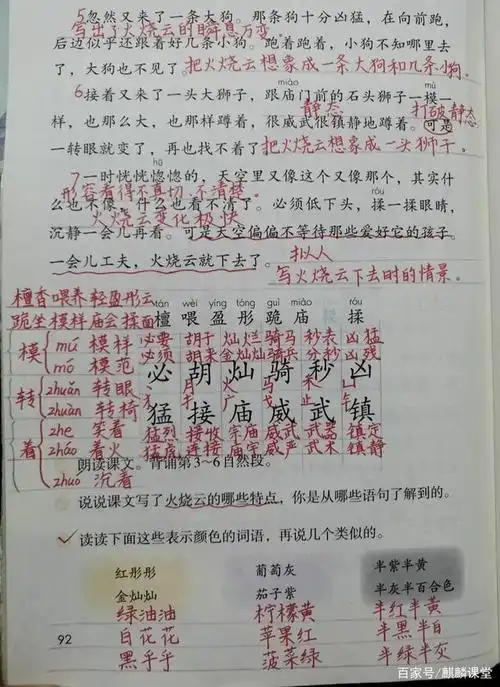 5忽然又来了一条大狗。那条狗十分凶猛，在向前跑，
写出了火烧云的瞬息万变。
后边似乎还跟着好几条小狗。跑着跑着，小狗不知哪里去
了，大狗也不见了。把火烧云想象成一条大狗和几条小狗。
miào mú
6接着又来了一头大狮子，跟庙门前的石头狮子一模一
静态 打破静态
样，也那么大，也那样蹲着，很威武很镇静地蹲着。可是
一转眼就变了，再也找不着了把火烧云想象成一头狮子。
hū
7一时恍恍惚惚的，天空里又像这个又像那个，其实什
形容看得不真切、不清楚。
róu
么也不像，什么也看不清了。必须低下头，揉一揉眼睛，
火烧云变化极快
沉静一会儿再看。可是天空偏偏不等待那些爱好它的孩子。
一会儿工夫，火烧云就下去了。拟人
写火烧云下去时的情景。
檀香喂养轻盈彤云
tán wèi yíng tóng guì miào róu
跪坐模样庙会揉面
檀喂盈彤跪庙揉
模 mú 模样
mó 模范
转 zhuǎn 转眼
zhuàn 转椅
着 zhe 笑着
zháo 着火
zhuó 沉着
必要 胡子 灿烂 骑马 秒表 凶猛
必须 胡来 金灿灿 骑兵 分秒 凶残
必胡灿骑秒凶
猛接庙威武镇
猛烈 接收 宗庙 威武 武器 镇定
猛虎 连接 庙宇 威严 武术 镇静
朗读课文。背诵第3~6自然段。
说说课文写了火烧云的哪些特点，你是从哪些语句了解到的。
✓读读下面这些表示颜色的词语，再说几个类似的。
红彤彤 葡萄灰 半紫半黄
金灿灿 茄子紫 半灰半百合色
绿油油 柠檬黄 半红半黄
白花花 苹果红 半黑半白
黑乎乎 菠菜绿 半绿半灰
92
百家号/麒麟课堂